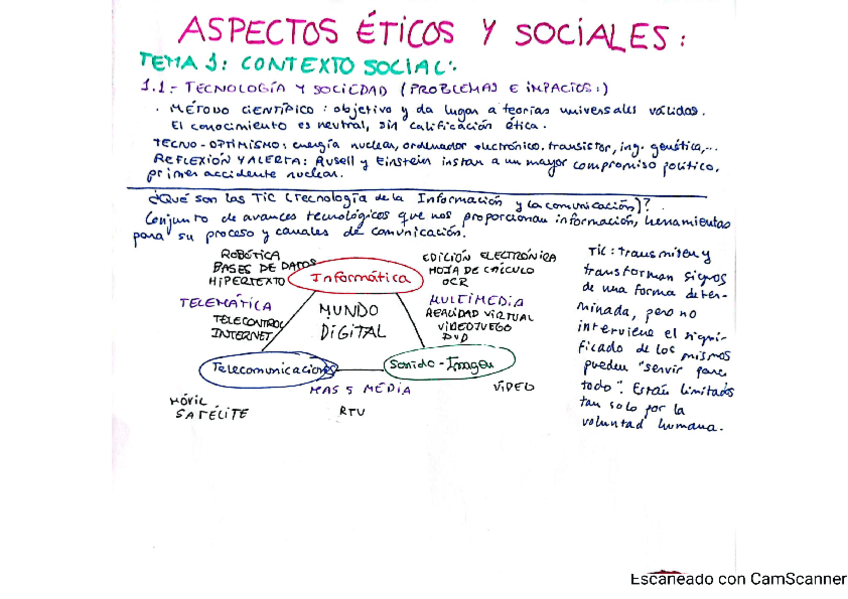 ASPECTOS ÉTICOS Y SOCIALES:
TEMA 1: CONTEXTO SOCIAL:
1.1: TECNOLOGÍA Y SOCIEDAD (PROBLEMAS E IMPACTOS:)
· MÉTODO CIENTÍFICO: objetivo y da lugar a teorías universales válidas.
El conocimiento es neutral, sin calificación ética.
TECNO-OPTIMISMO: energía nuclear, ordenador electrónico, transistor, ing. genética,...
REFLEXIÓN Y ALERTA: Rusell y Einstein instan a un mayor compromiso político,
primer accidente nuclear.
¿Qué son las TIC (Tecnología de la Información y la comunicación)?
Conjunto de avances tecnológicos que nos proporcionan información, herramientas
para su proceso y canales de comunicación.
ROBÓTICA
BASES DE DATOS
HIPERTEXTO
Informática
EDICIÓN ELECTRÓNICA
HOJA DE CÁLCULO
OCR
TELEMÁTICA
TELECONTROL
INTERNET
MUNDO
DIGITAL
MULTIMEDIA
REALIDAD VIRTUAL
VIDEOJUEGO
DVD
Telecomunicaciones
Sonido-Imagen
MASS MEDIA
RTV
VIDEO
MÓVIL
SATÉLITE
TIC: transmiten y
transforman signos
de una forma deter-
minada, pero no
interviene el signi-
ficado de los mismos
pueden "servir para
todo". Están limitados
tan solo por la
voluntad humana.
Escaneado con CamScanner